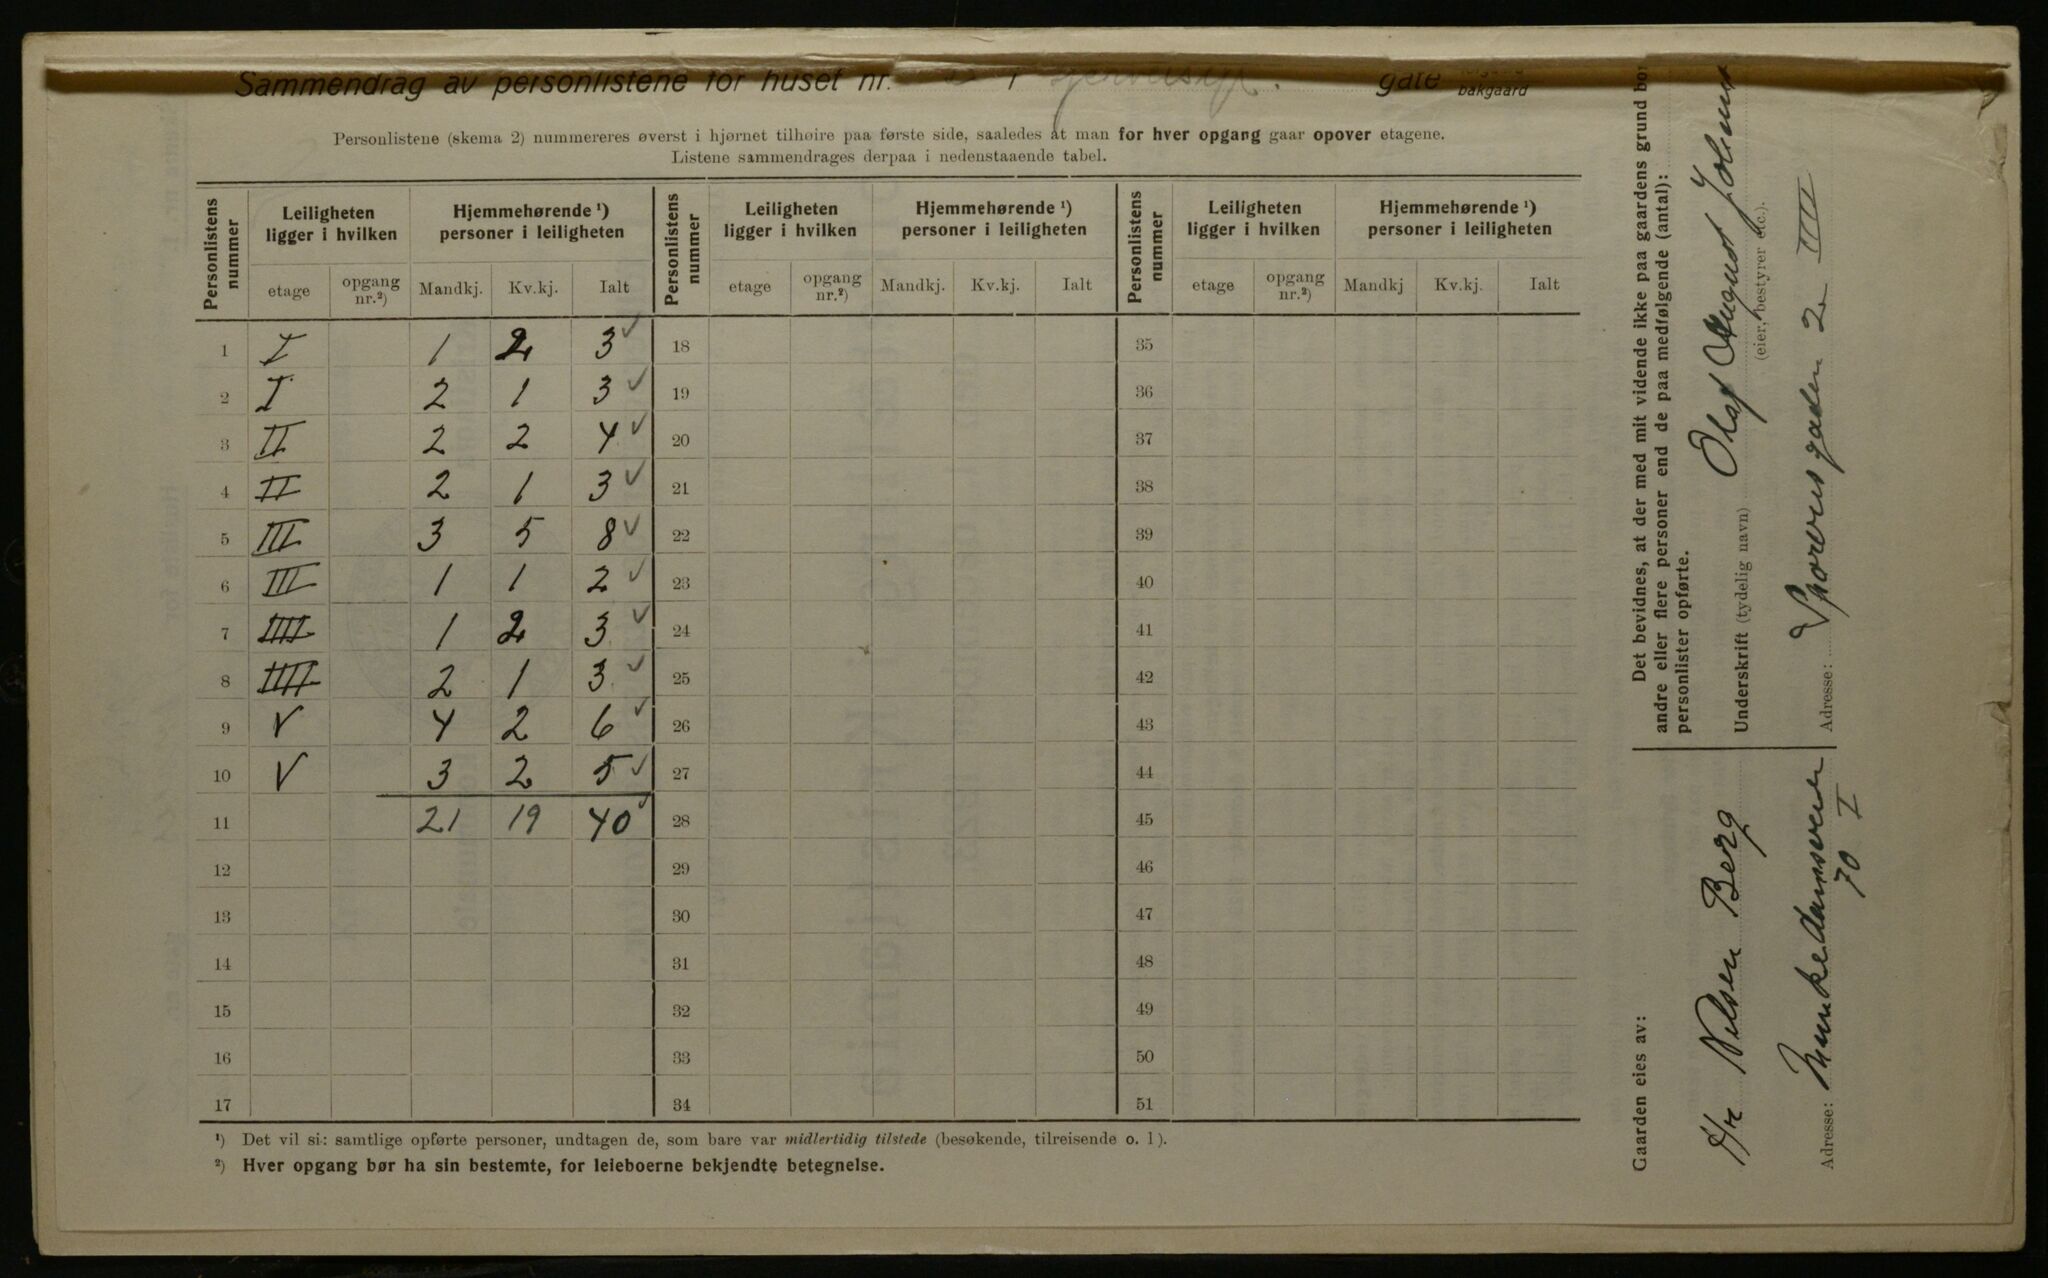 Sammendrag av personlistene for huset nr. gate bakgaard
Personlistene (skema 2) nummereres øverst i hjørnet tilhøire paa første side, saaledes at man for hver opgang gaar opover etagene.
Listene sammendrages derpaa i nedenstaaende tabel.
Personlistens nummer | Leiligheten ligger i hvilken | Hjemmehørende ¹) personer i leiligheten | Personlistens nummer | Leiligheten ligger i hvilken | Hjemmehørende ¹) personer i leiligheten | Personlistens nummer | Leiligheten ligger i hvilken | Hjemmehørende ¹) personer i leiligheten
etage | opgang nr.²) | Mandkj. | Kv.kj. | Ialt | etage | opgang nr.²) | Mandkj. | Kv.kj. | Ialt | etage | opgang nr.²) | Mandkj | Kv.kj. | Ialt
1 I 1 2 3 ✓ 18 35
2 I 2 1 3 ✓ 19 36
3 II 2 2 4 ✓ 20 37
4 II 2 1 3 ✓ 21 38
5 III 3 5 8 ✓ 22 39
6 III 1 1 2 ✓ 23 40
7 IIII 1 2 3 ✓ 24 41
8 IIII 2 1 3 ✓ 25 42
9 V 4 2 6 ✓ 26 43
10 V 3 2 5 ✓ 27 44
11 21 19 40 ✓ 28 45
12 29 46
13 30 47
14 31 48
15 32 49
16 33 50
17 34 51
¹) Det vil si: samtlige opførte personer, undtagen de, som bare var midlertidig tilstede (besøkende, tilreisende o. l).
²) Hver opgang bør ha sin bestemte, for leieboerne bekjendte betegnelse.
Det bevidnes, at der med mit vidende ikke paa gaardens grund bor
andre eller flere personer end de paa medfølgende (antal):
personlister opførte.
Underskrift (tydelig navn) Olaf August
(eier, bestyrer etc.).
Adresse: 2 IIII
Gaarden eies av:
Hr Nilsen Berg
Adresse: Munkedamsveien
70 I